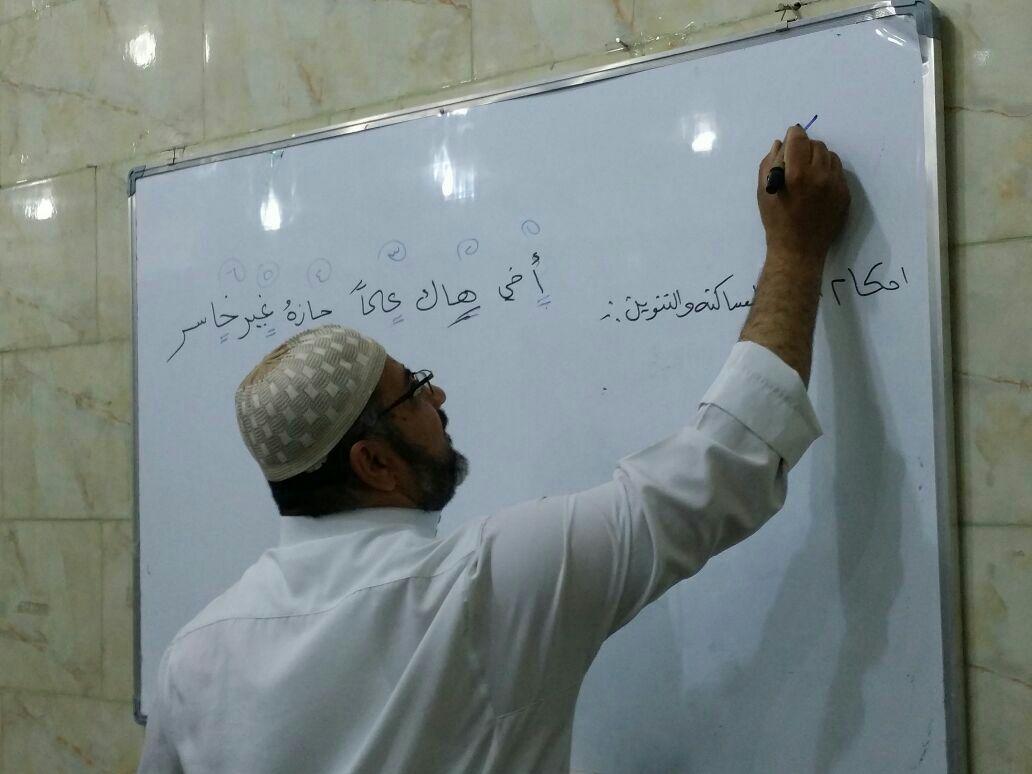 احكام الساكنة والتنوين :-
١ ٢ ٣ ٤ ٥ ٦
أخي هاك علماً حازهُ غير خاسر